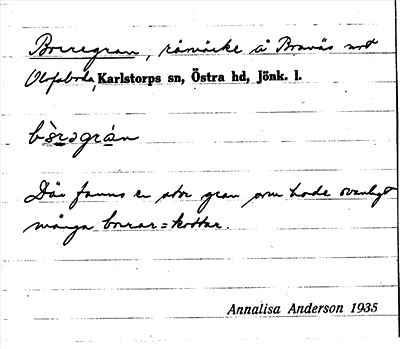 Borregran, råmärke å Bravås mot
Olofsboda, Karlstorps sn, Östra hd, Jönk. l.
bòrəgràn
Där fanns en stor gran som hade ovanligt
många borrar = kottar.
Annalisa Anderson 1935